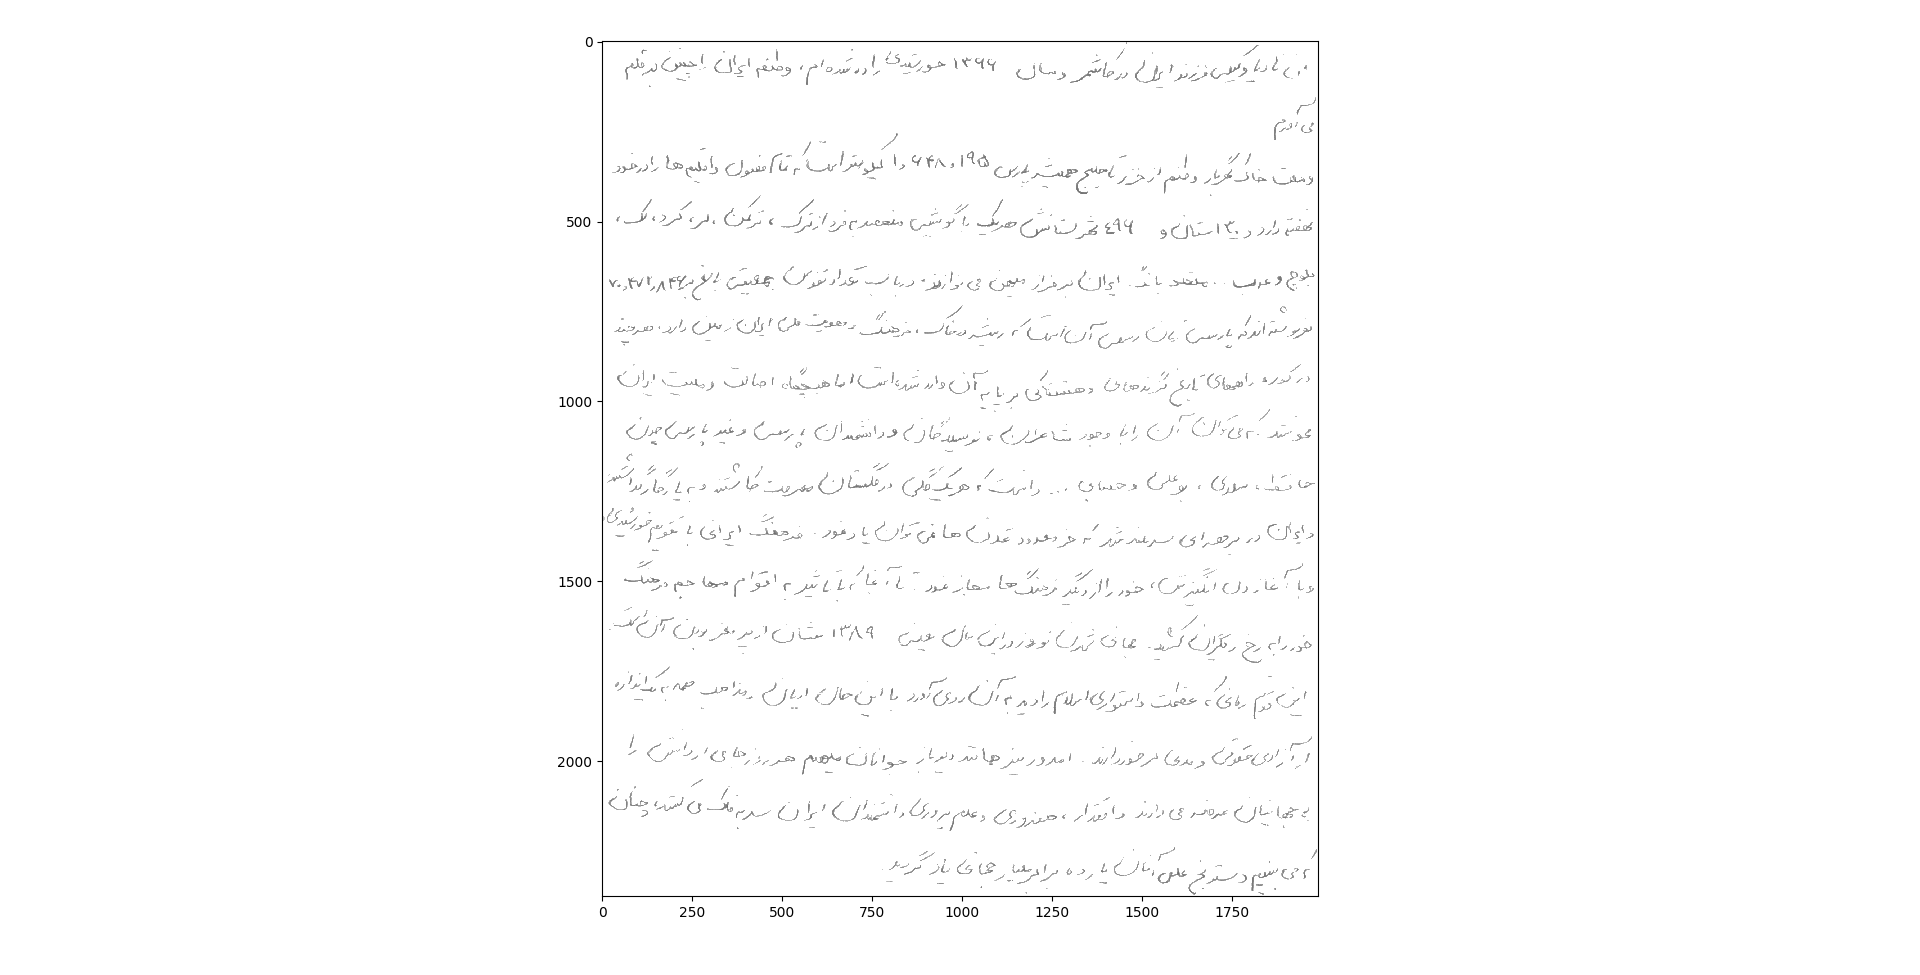 من نادیا ویسی فرزند ایران در کاشمر و سال ۱۳۶۶ خورشیدی زاده شده ام، وطنم ایران را چنین به قلم
می آورم
وسعت خاک گهربار وطنم از خزر تا خلیج همیشه پارس ۱۹۵و۶۴۸و۱ کیلومتر است که تمام فصول و اقلیم ها را در خود
نهفته دارد و ۳۰ استان و ۴۹۶ شهرستانش هریک با گویشی منحصر به فرد از ترک، ترکمن، لر، کرد، لک،
بلوچ و عرب .. متحد بانگ ایران سرفراز میهن می نوازند. در باب تعداد نفوس جمعیتی بالغ بر ۷۰،۴۷۲،۸۴۶
نفر نوشته اند که پارسی زبان رسمی آن است که ریشه در خاک، فرهنگ و هویت ملی ایران زمین دارد. هرچند
در کوره راههای تاریخ گزندهای دهشتناکی بر پایه آن وارد شده است اما هیچگاه اصالت و ملیت ایران
محو نشد که می توان آن را با وجود شاعران، نویسندگان و دانشمندان پارسی و غیر پارسی چون
حافظ، سعدی، بوعلی و ... دانست که هریک گلی در گلستان معرفت کاشتند و به یادگار گذاشتند
و ایران در برهه ای سربلند شد که جز معدود تمدن ها می توان یاد نمود. فرهنگ ایرانی با تقویم خورشیدی
و با آغاز دل انگیزش، خود را از دیگر فرهنگ ها مجاز نمود تا آنجا که با تاثیر به اقوام مهاجم فرهنگ
خود را به رخ دیگران کشید. جهانی شدن نوروز در این سال یعنی ۱۳۸۹ نشان از پر مغز بودن آن است
این قوم زمانی که عظمت و استواری اسلام را دید به آن روی آورد با این حال ادیان و مذاهب همه به یک اندازه
از آزادی حقوقی و مدنی برخوردارند. امروز نیز همانند دیرباز جوانان میهنم هر روز جای ارزانش را
به جهانیان عرضه می دارند و اقتدار، هنروری و علم پروری دانشمندان ایران سر به فلک می کشد، چنان
که می بینیم دسترنج علمی آنان یارده برابر معیار جهانی یاد گردید.